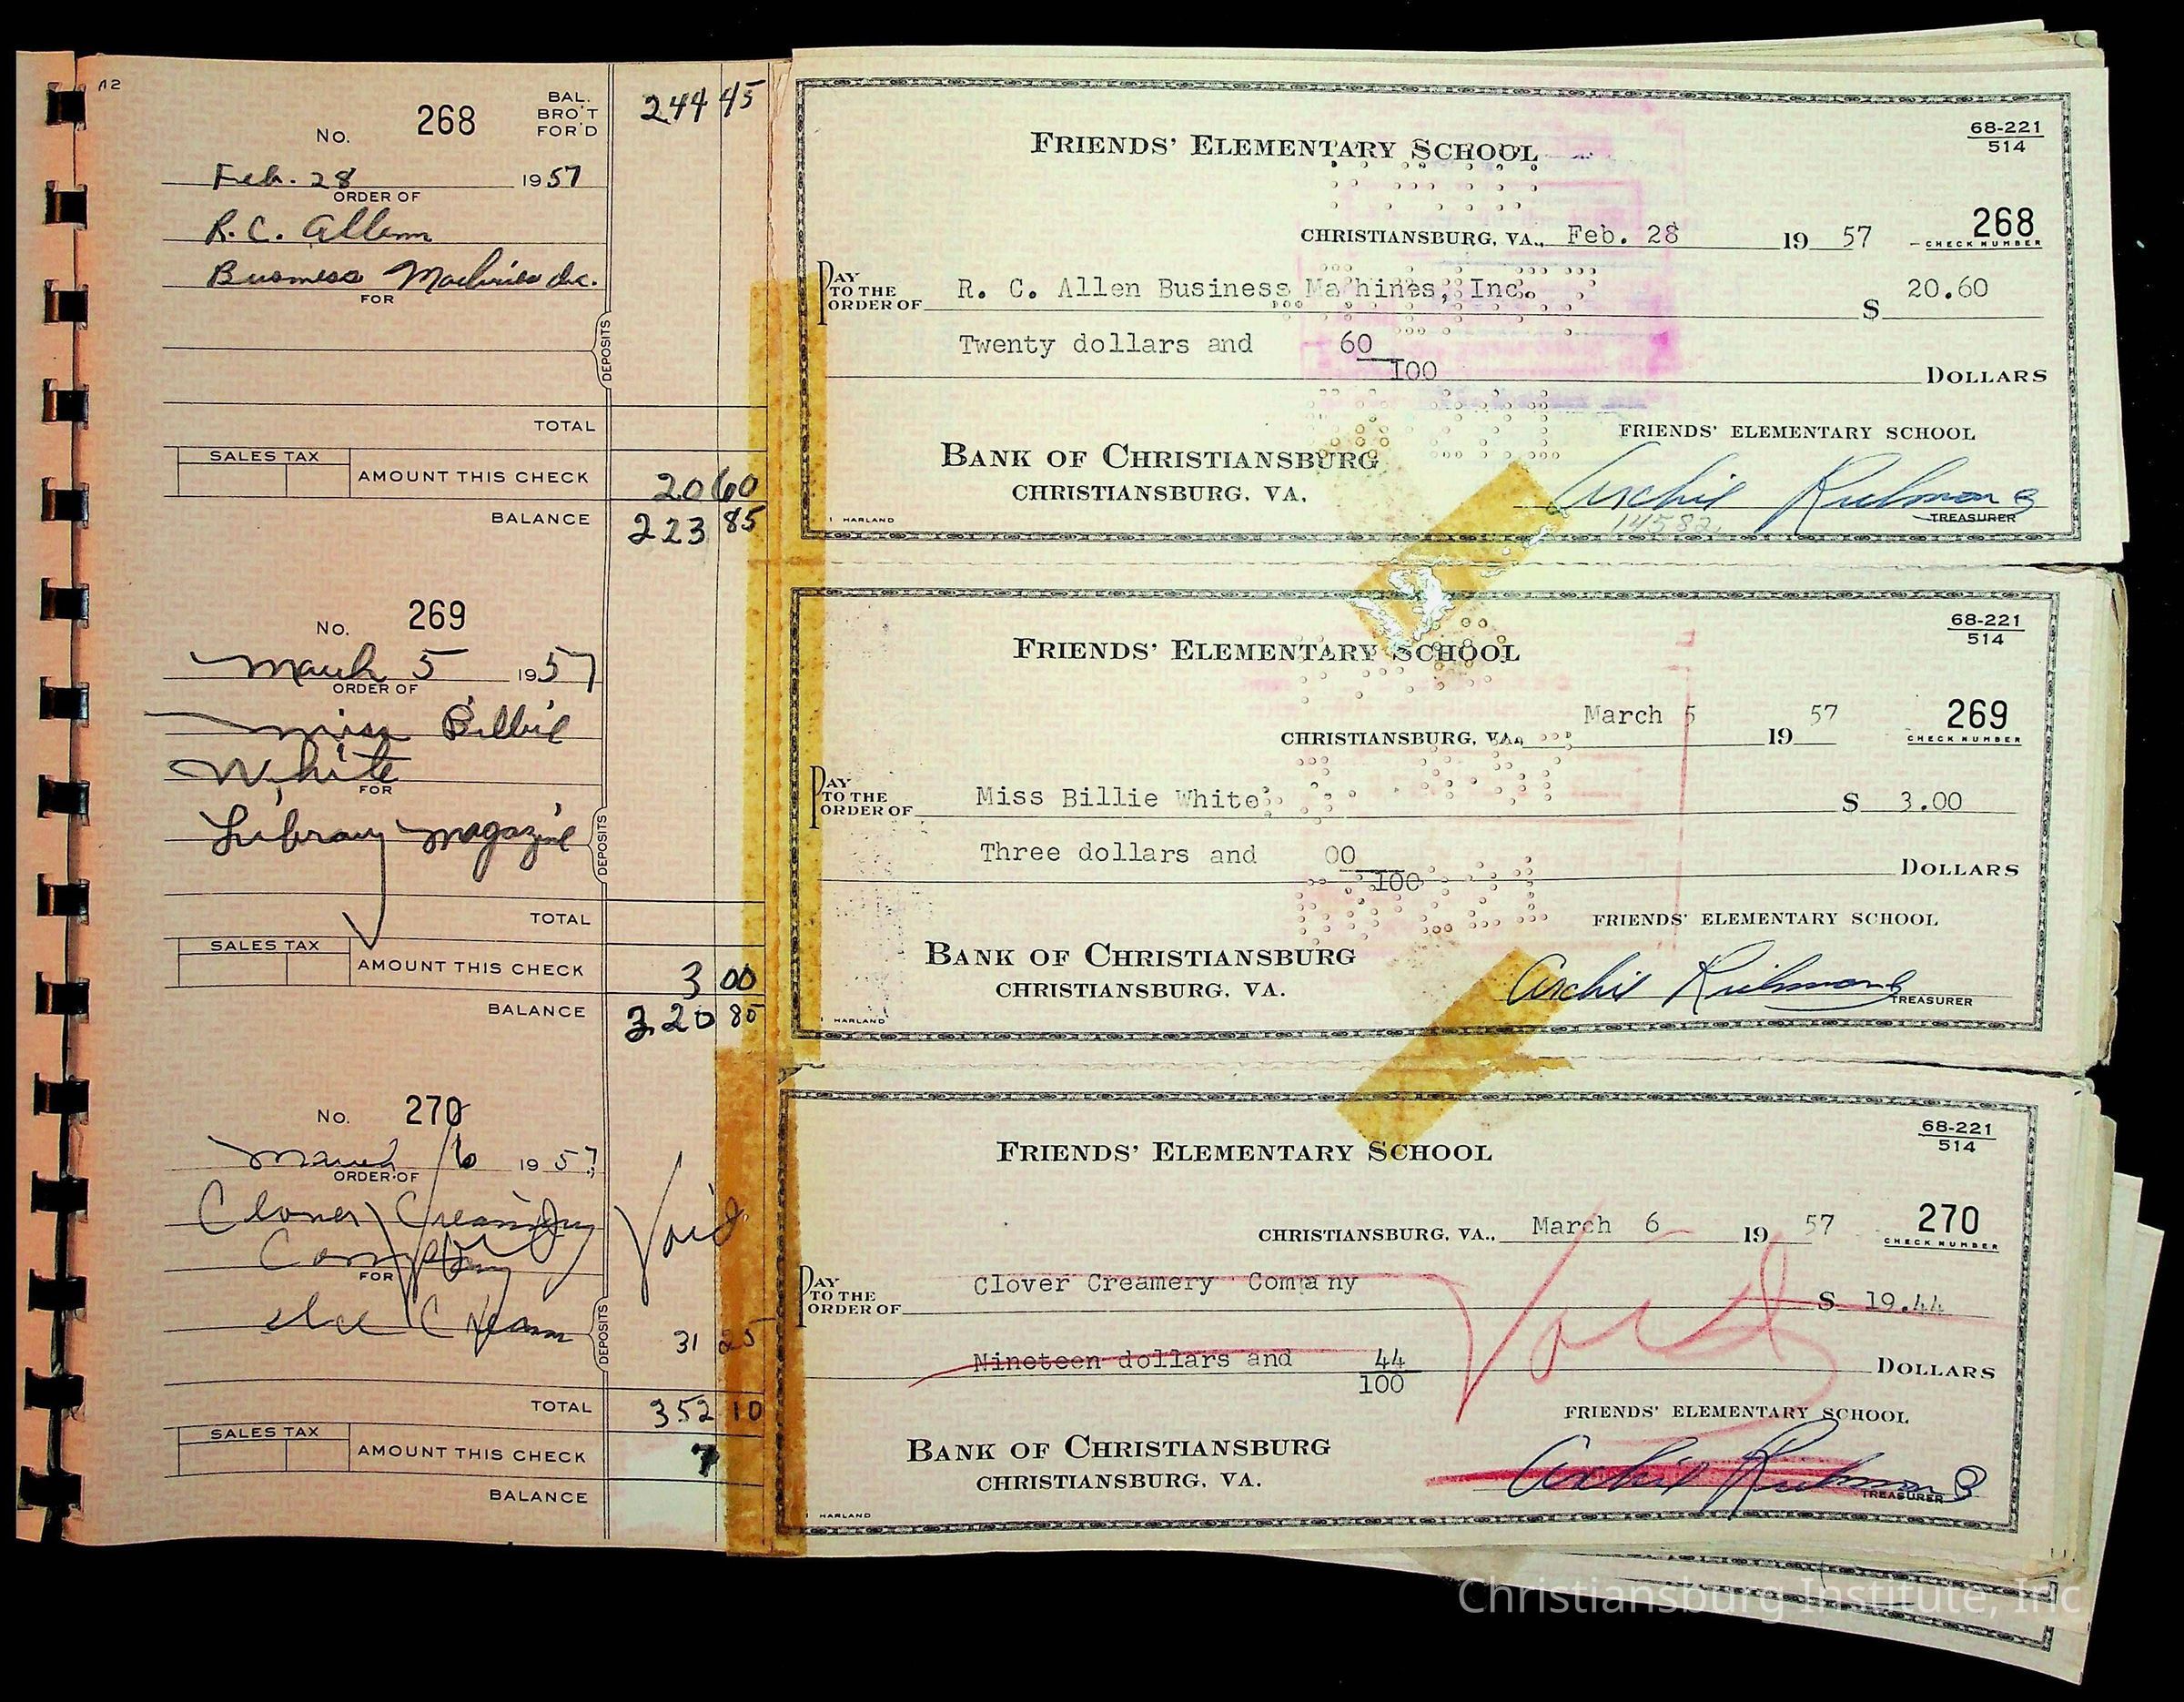 A2
No. 268 BAL. BRO'T FOR'D 244 45
Feb. 28 1957
ORDER OF
R.C. Allenn
Business Machines Inc.
FOR
DEPOSITS
TOTAL
SALES TAX AMOUNT THIS CHECK 20 60
BALANCE 223 85
No. 269
March 5 1957
ORDER OF
Miss Billie
White
FOR
Library Magazine
DEPOSITS
TOTAL
SALES TAX AMOUNT THIS CHECK 3 00
BALANCE 220 85
No. 270
March 6 1957
ORDER OF
Clover Creamery Void
Company
FOR
Ice Cream
DEPOSITS 31 25
TOTAL 352 10
SALES TAX AMOUNT THIS CHECK
BALANCE
FRIENDS' ELEMENTARY SCHOOL
68-221
514
CHRISTIANSBURG, VA., Feb. 28 19 57 268
CHECK NUMBER
PAY TO THE ORDER OF R. C. Allen Business Machines, Inc. $ 20.60
Twenty dollars and 60/100 DOLLARS
FRIENDS' ELEMENTARY SCHOOL
BANK OF CHRISTIANSBURG
CHRISTIANSBURG, VA.
Archie Richmond
14582
TREASURER
HARLAND
FRIENDS' ELEMENTARY SCHOOL
68-221
514
CHRISTIANSBURG, VA., March 5 19 57 269
CHECK NUMBER
PAY TO THE ORDER OF Miss Billie White $ 3.00
Three dollars and 00/100 DOLLARS
FRIENDS' ELEMENTARY SCHOOL
BANK OF CHRISTIANSBURG
CHRISTIANSBURG, VA.
Archie Richmond
TREASURER
HARLAND
FRIENDS' ELEMENTARY SCHOOL
68-221
514
CHRISTIANSBURG, VA., March 6 19 57 270
CHECK NUMBER
PAY TO THE ORDER OF Clover Creamery Company $ 19.44
Void
Nineteen dollars and 44/100 DOLLARS
FRIENDS' ELEMENTARY SCHOOL
BANK OF CHRISTIANSBURG
CHRISTIANSBURG, VA.
Archie Richmond
TREASURER
HARLAND
Christiansburg Institute, Inc